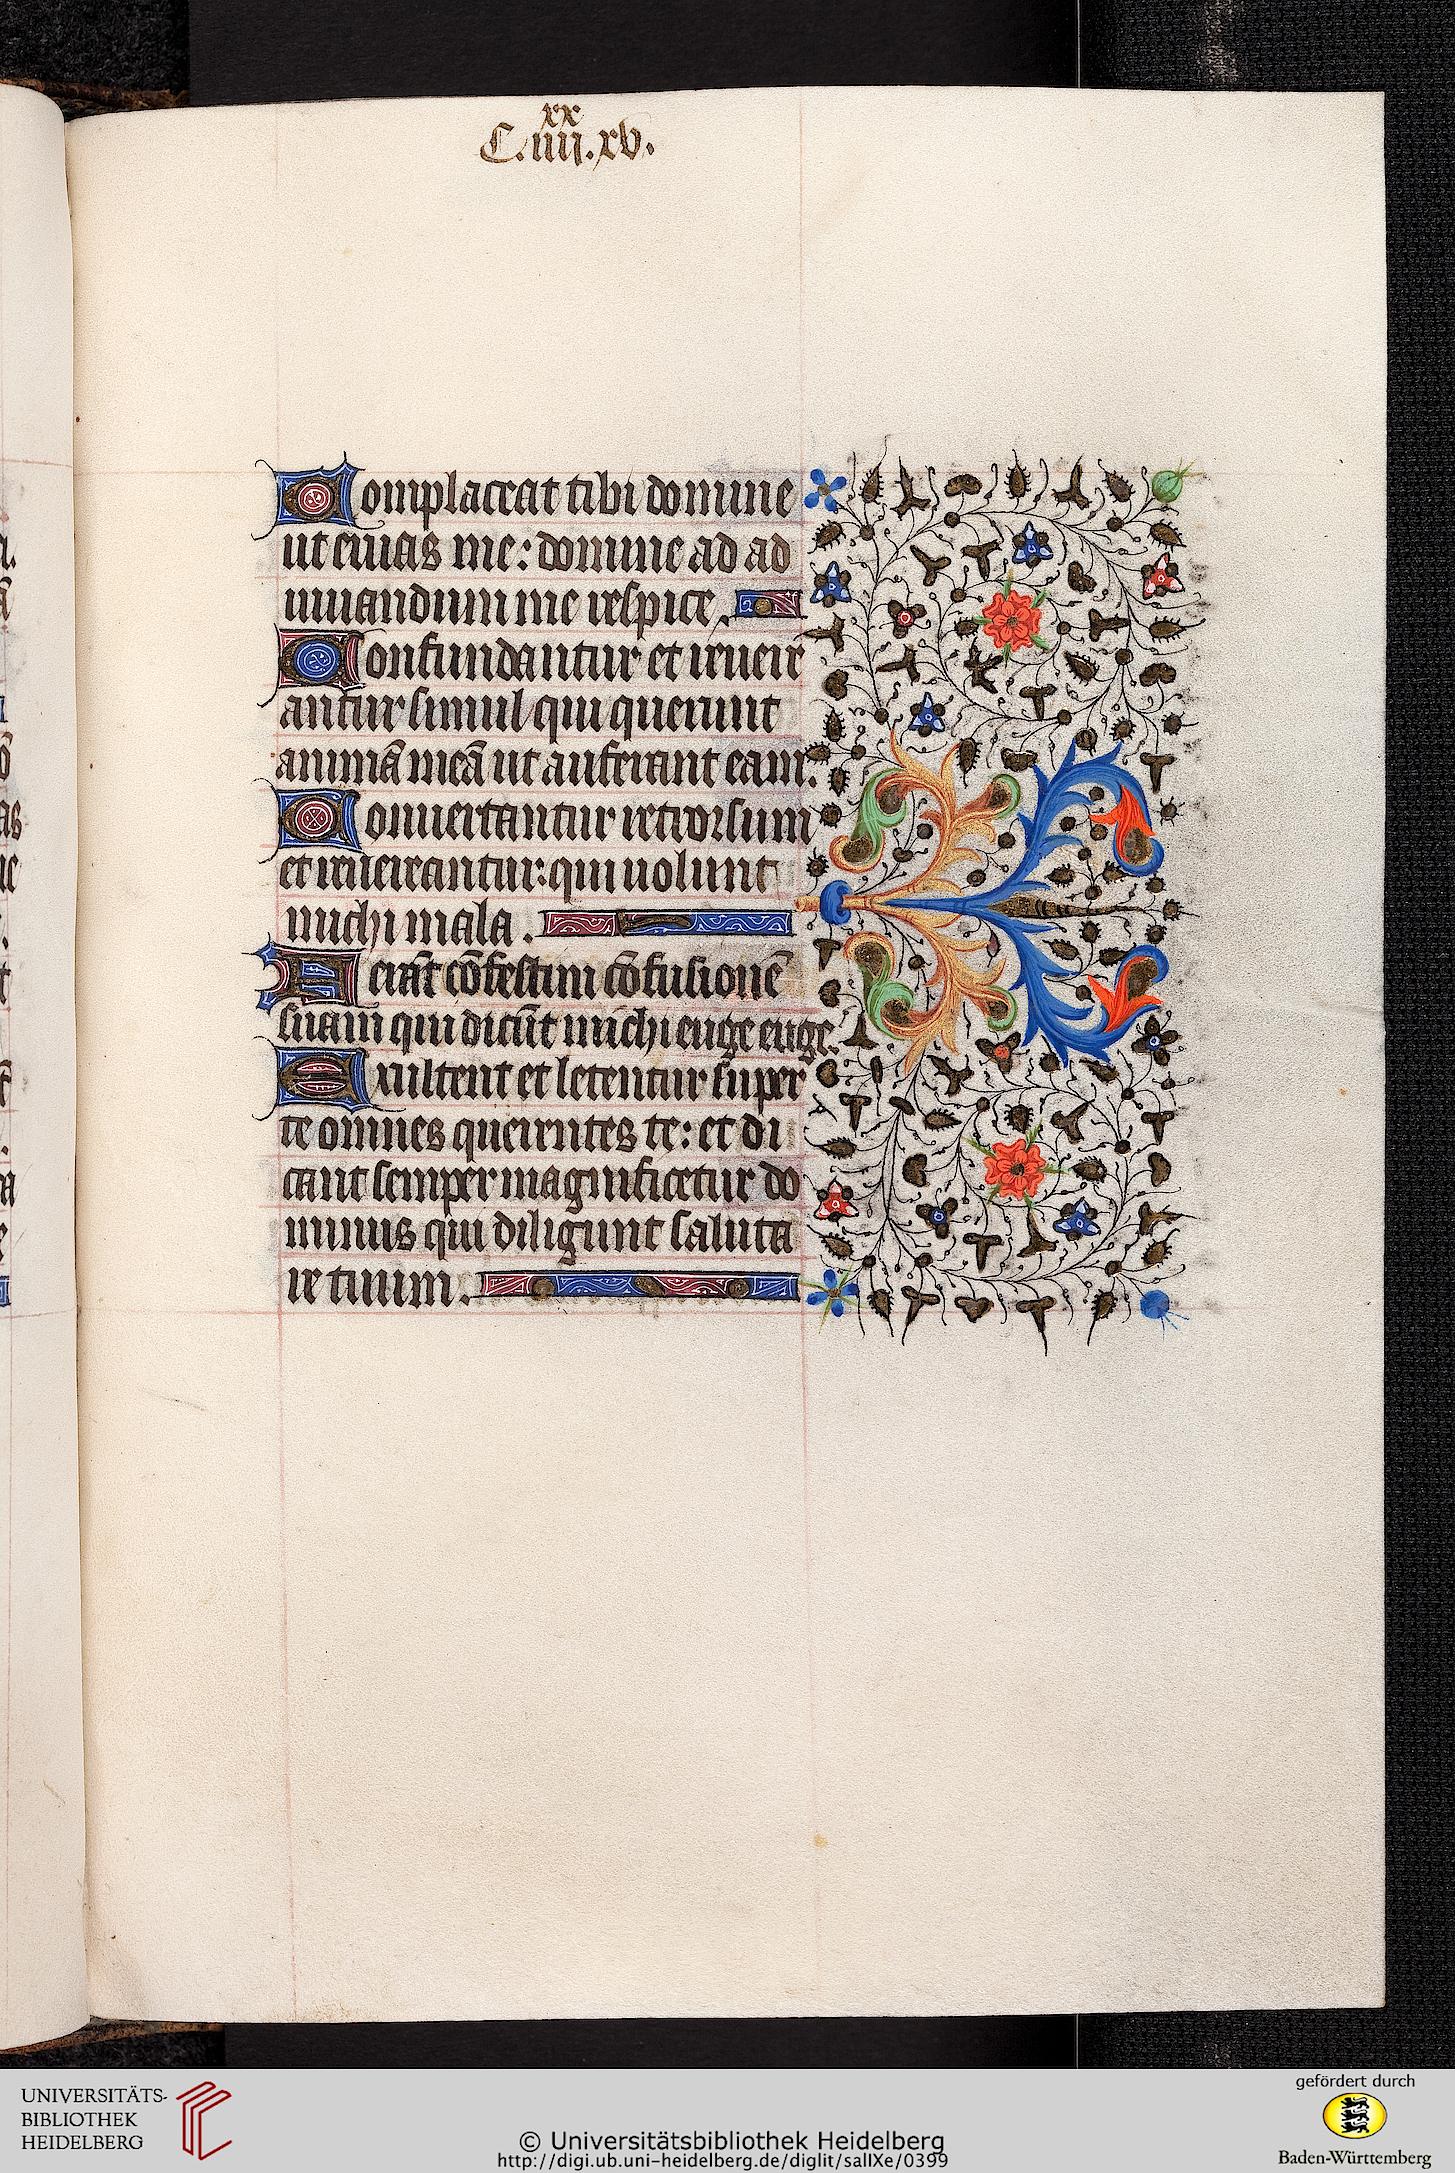 C.iiij.xv.
xx
Complaceat tibi domine
ut eruas me: domine ad ad
iuuandum me respice.
Confundantur et reuere
antur simul qui querunt
animā meā ut auferant eam.
Conuertantur retrorsum
et reuereantur: qui uolunt
michi mala.
Ferāt cōfestim cōfusionē
suam qui dicūt michi euge euge.
Exultent et letentur super
te omnes querentes te: et di
cant semper magnificetur do
minus qui diligunt saluta
re tuum.
UNIVERSITÄTS-
BIBLIOTHEK
HEIDELBERG
© Universitätsbibliothek Heidelberg
http://digi.ub.uni-heidelberg.de/diglit/salIXe/0399
gefördert durch
Baden-Württemberg